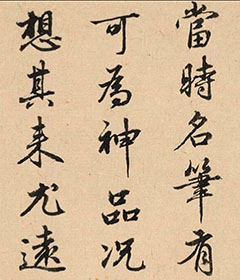 當時名筆有
可為神品况
想其来尤遠